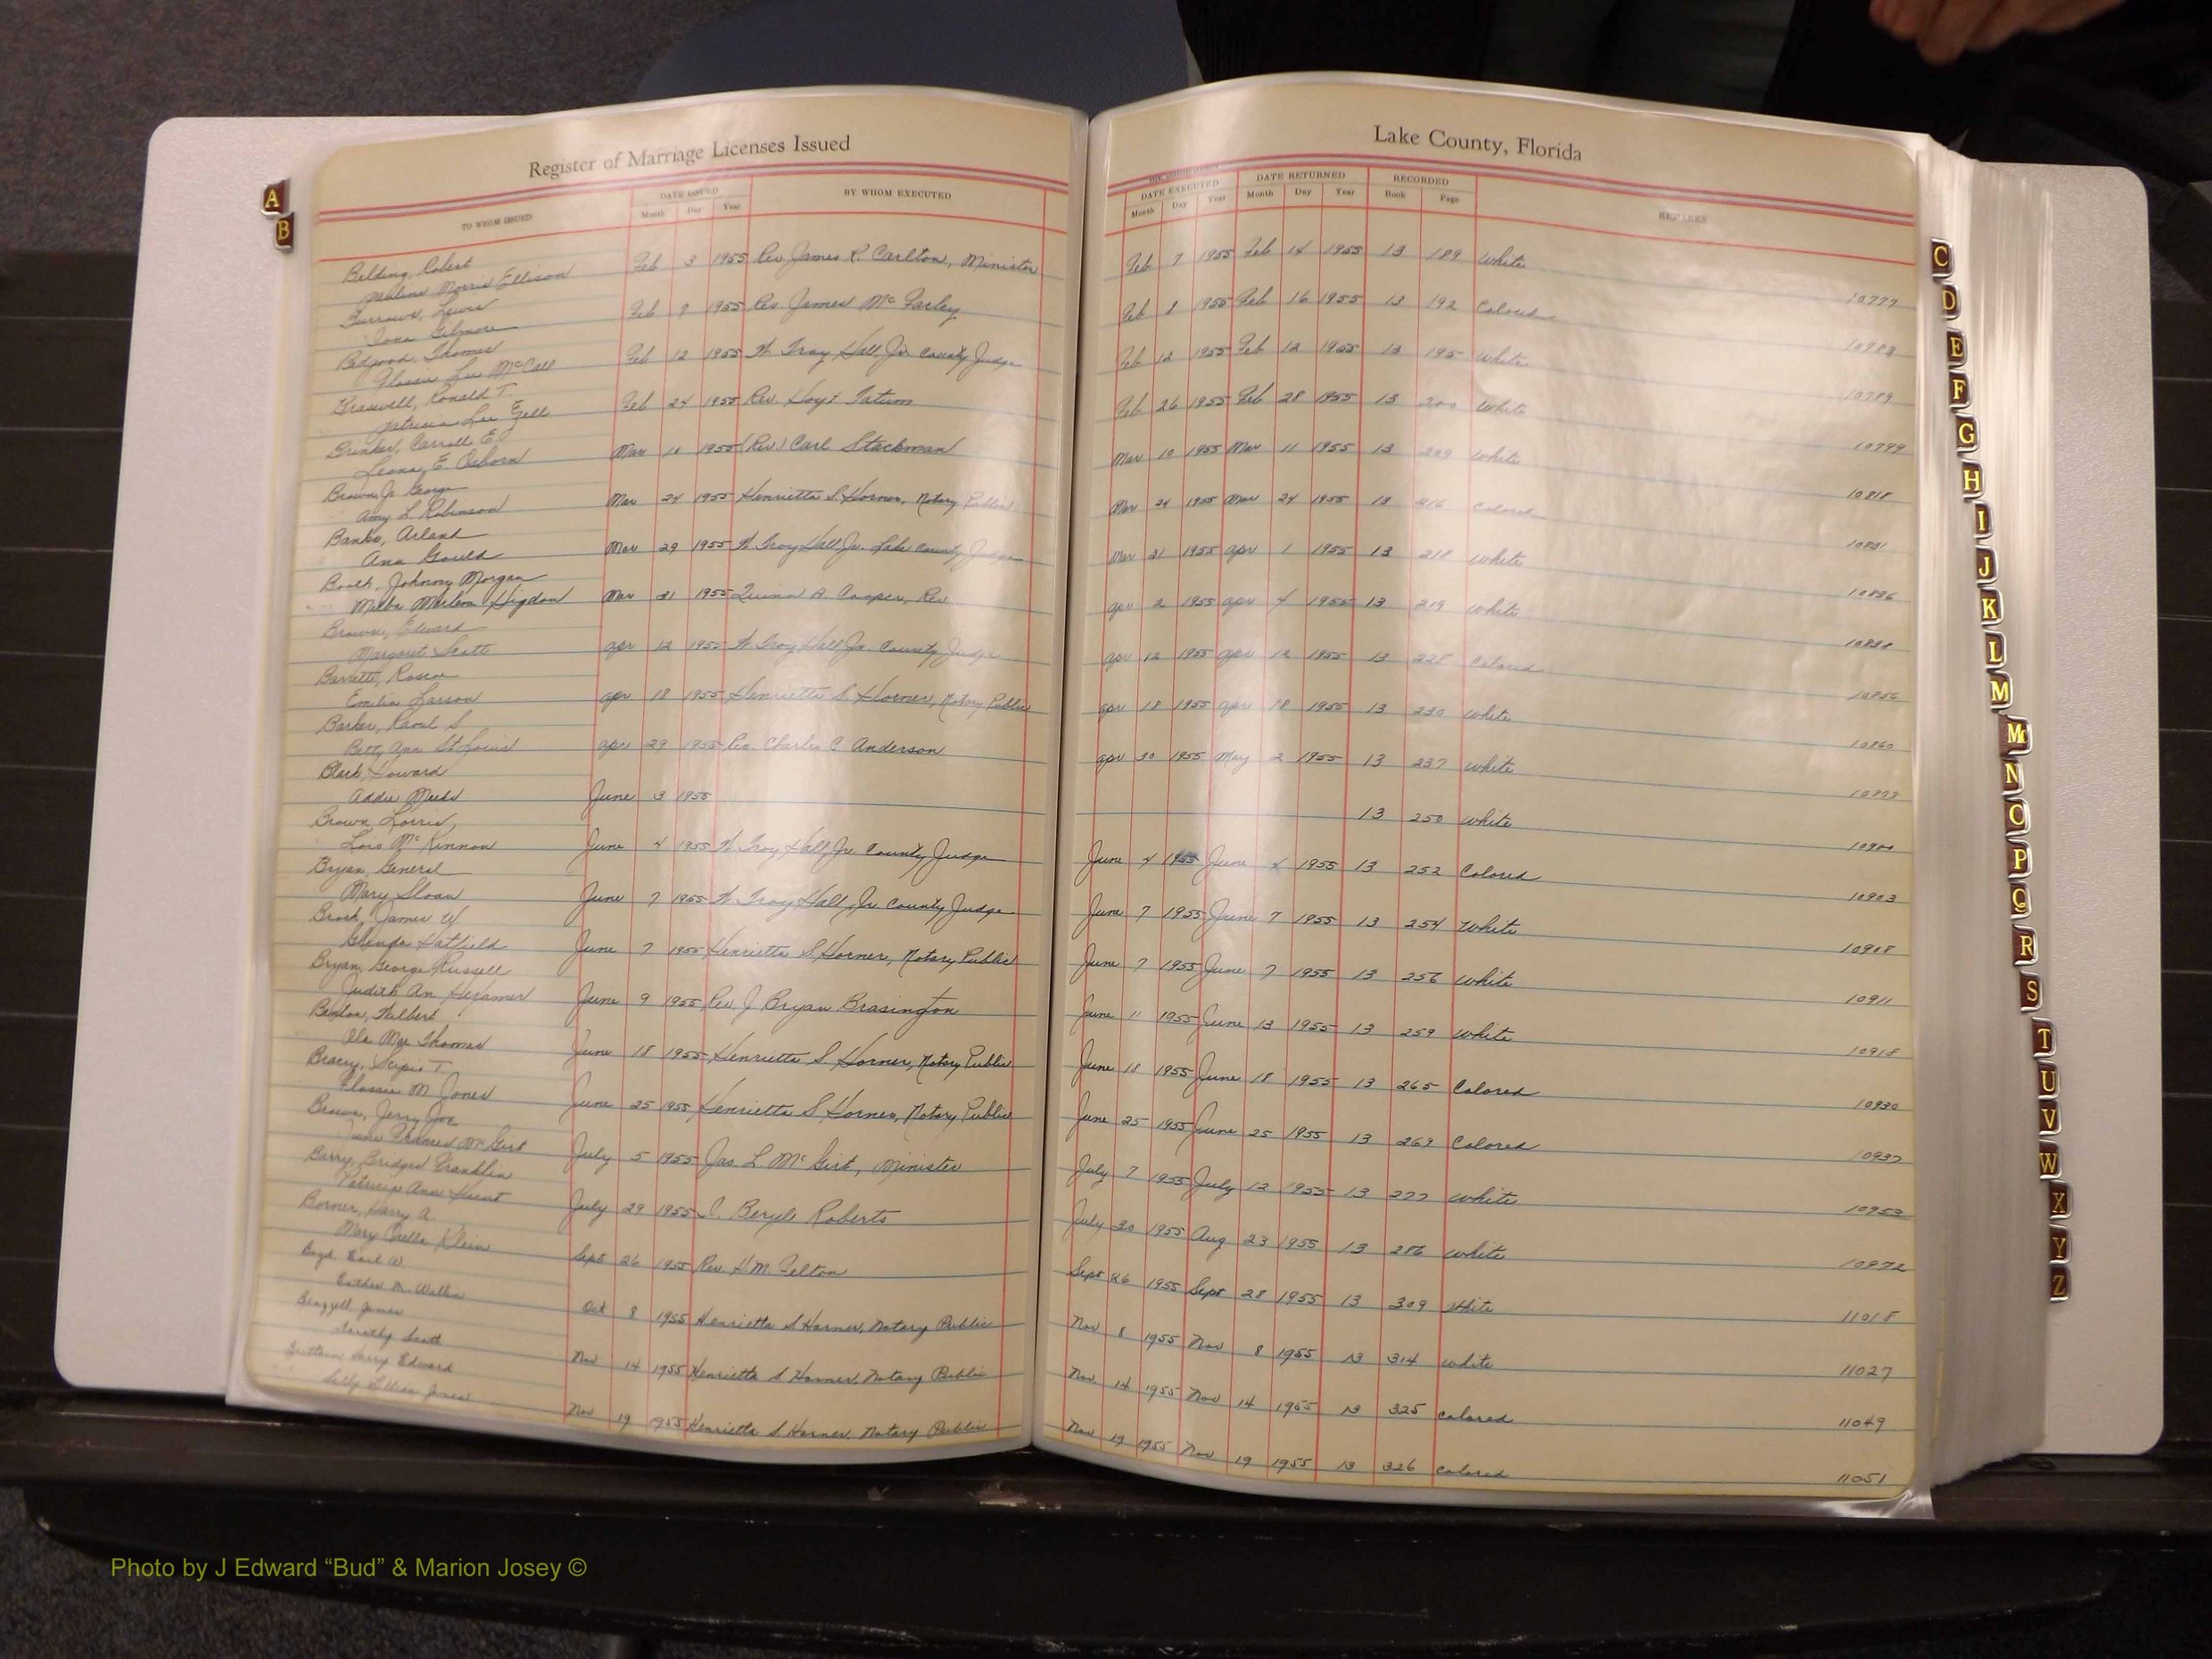 Register of Marriage Licenses Issued
Lake County, Florida
TO WHOM ISSUED DATE ISSUED Month Day Year BY WHOM EXECUTED
DATE EXECUTED Month Day Year DATE RETURNED Month Day Year RECORDED Book Page REMARKS
A
B
Belding, Robert
Pauline Morris Ellison Feb 3 1955 Rev James R. Carlton, Minister Feb 7 1955 Feb 14 1955 13 189 White 10777
Burrows, Lewis
Iona Gilmore Feb 7 1955 Rev. James Mc Farley Feb 8 1955 Feb 16 1955 13 192 Colored 10783
Thomas
Flossie Lee McCall Feb 12 1955 W. Troy Hall, Jr. County Judge Feb 12 1955 Feb 12 1955 13 195 White 10789
Braswell, Ronald T.
Patricia Lee Feb 24 1955 Rev. Hoyt Tatum Feb 26 1955 Feb 28 1955 13 200 White 10799
Brinker, Carroll E.
Leona E. Osborn Mar 10 1955 (Rev) Carl Stackman Mar 10 1955 Mar 11 1955 13 209 White 10818
Brown, Jr George
Amy L Robinson Mar 24 1955 Henrietta S. Horner, Notary Public Mar 24 1955 Mar 24 1955 13 216 Colored 10831
Banks, Arland
Ann Gould Mar 29 1955 W. Troy Hall Jr. Lake County Judge Mar 31 1955 Apr 1 1955 13 218 White 10836
Booth, Johnny Morgan
Melba Higdon Mar 31 1955 Quinn A. Cooper, Rev Apr 2 1955 Apr 4 1955 13 219 White 10838
Brown, Edward
Margaret Scott Apr 12 1955 W Troy Hall Jr. County Judge Apr 12 1955 Apr 12 1955 13 Colored
Barrette, Roscoe
Emilia Larson Apr 18 1955 Henrietta S. Horner, Notary Public Apr 18 1955 Apr 18 1955 13 230 White 10860
Barker, Raoul S.
Betty Ann St Louis Apr 29 1955 Rev. Charles C Anderson Apr 30 1955 May 2 1955 13 237 White
Howard
Addie Meeks June 3 1955 13 250 White
Brown,
Lois McKinnon June 4 1955 W. Troy Hall, Jr. County Judge June 4 1955 June 4 1955 13 252 Colored 10903
Bryan, General
Mary Sloan June 7 1955 W Troy Hall, Jr County Judge June 7 1955 June 7 1955 13 254 White
Brock, James W
Glenda Hatfield June 7 1955 Henrietta S Horner, Notary Public June 7 1955 June 7 1955 13 256 White 10911
Bryan, George Russell
Judith An June 9 1955 Rev. J Bryan Brasington June 11 1955 June 13 1955 13 259 White 10918
Benton, Wilbert
Ola Mae Thomas June 18 1955 Henrietta S Horner, Notary Public June 18 1955 June 18 1955 13 265 Colored 10930
Bracey, Scipio T.
Flossie M Jones June 25 1955 Henrietta S Horner, Notary Public June 25 1955 June 25 1955 13 269 Colored 10937
Brown, Jerry Joe
Frances McGirt July 5 1955 Jas. L. McGirt, Minister July 7 1955 July 12 1955 13 277 White 10953
Barry, Bridges Franklin
Patricia Ann Hunt July 29 1955 C. Beryle Roberts July 30 1955 Aug 23 1955 13 286 White 10972
Borner, Harry A
Mary Klein Sept 26 1955 Rev. H.M. Felton Sept 26 1955 Sept 28 1955 13 309 White 11018
Boyd, Earl W
Esther M. Oct 8 1955 Henrietta S Horner, Notary Public Nov 8 1955 Nov 8 1955 13 314 White 11027
James
Dorothy Scott Nov 14 1955 Henrietta S Horner, Notary Public Nov 14 1955 Nov 14 1955 13 325 Colored 11049
Harry Edward
Sally Lillian Jones Nov 19 1955 Henrietta S Horner, Notary Public Nov 19 1955 Nov 19 1955 13 326 Colored 11051
C
D
E
F
G
H
I
J
K
L
M
Mc
N
O
P
Q
R
S
T
U
V
W
X
Y
Z
Photo by J Edward “Bud” & Marion Josey ©